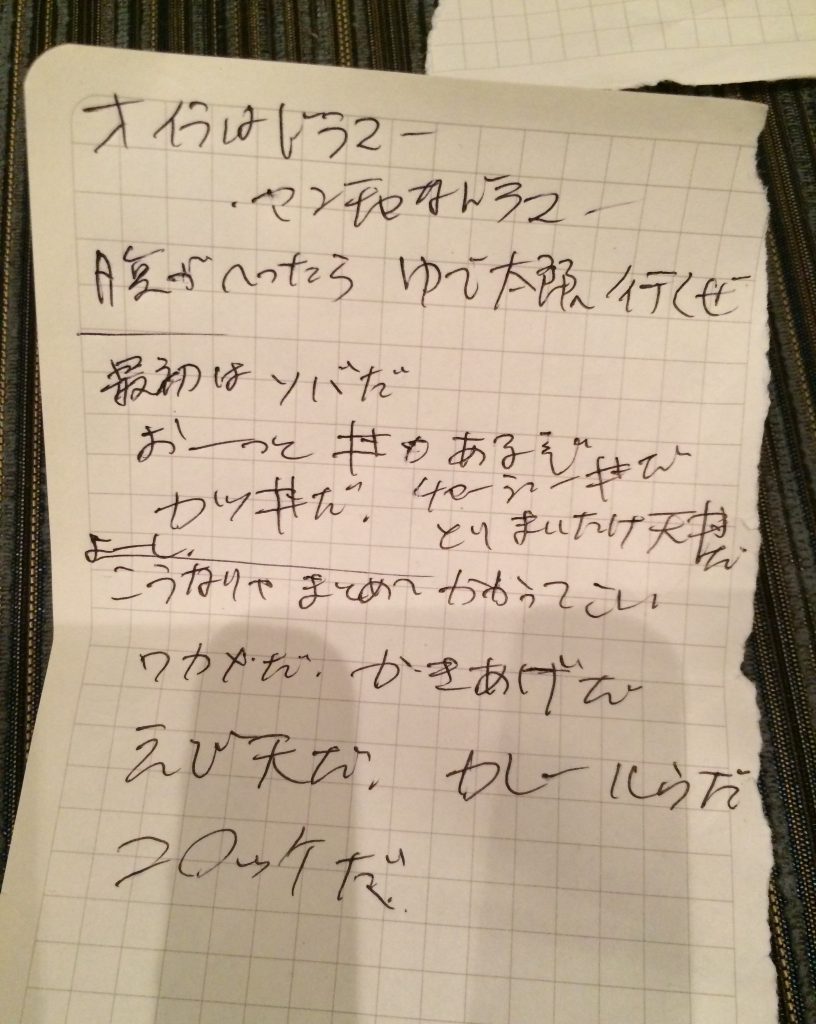 オイラはドラマー
なドラマー
腹がへったら ゆで太郎へ行くぜ
最初は ソバだ
おーっと 丼もあるぞ
カツ丼だ、
とりまいたけ天丼だ
よーし、
こうなりゃ まとめてかかってこい
ワカメだ、かきあげだ
えび天だ、カレールうだ
コロッケだ。